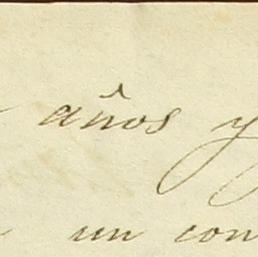 años y
un con